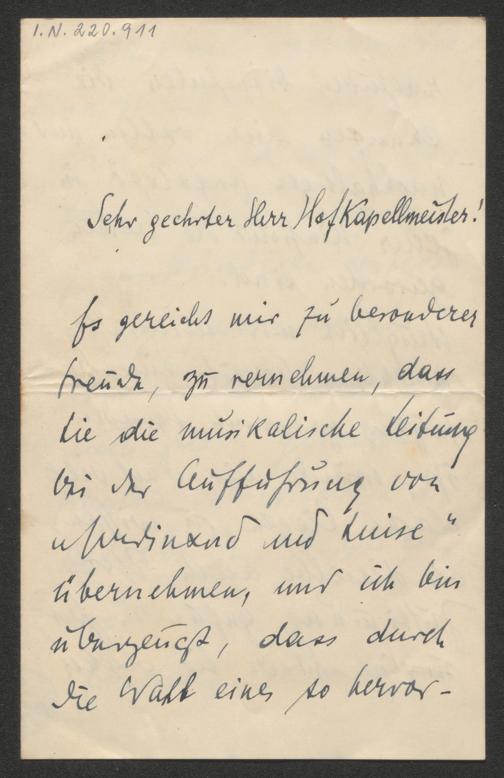 I.N. 220.911
Sehr geehrter Herr Hofkapellmeister!
Es gereicht mir zu besonderer
Freude, zu vernehmen, dass
Sie die musikalische Leitung
bei der Aufführung von
„Ferdinand und Luise"
übernehmen, und ich bin
überzeugt, dass durch
die Wahl eines so hervor-